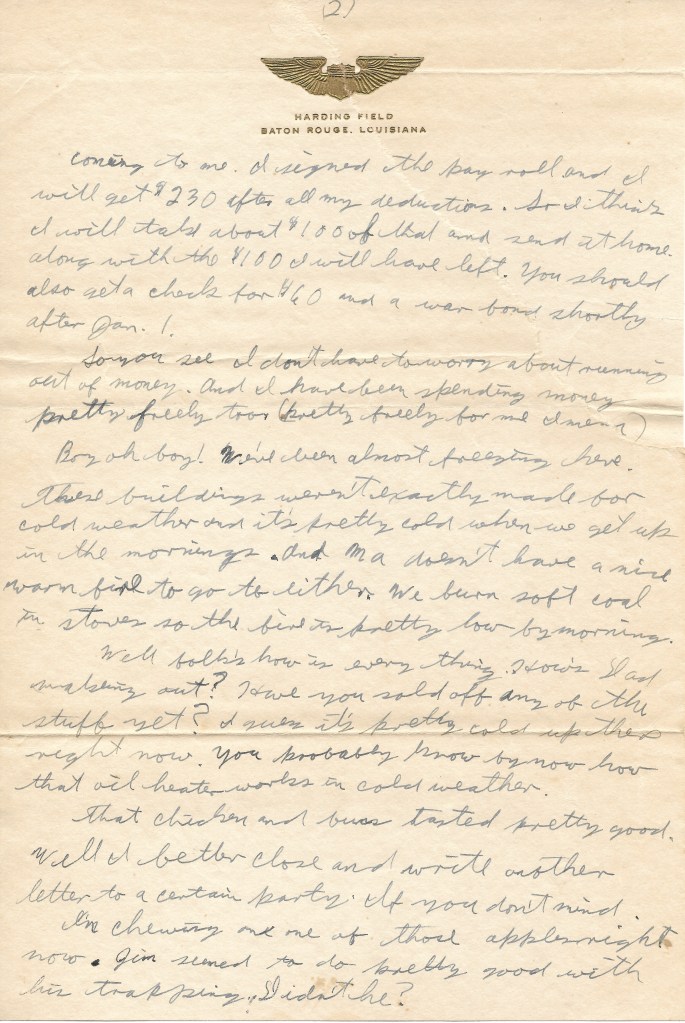 (2)
HARDING FIELD
BATON ROUGE, LOUISIANA
coming to me. I signed the pay roll and I
will get $230 after all my deductions. So I think
I will take about $100 of that and send it home
along with the $100 I will have left. You should
also get a check for $60 and a war bond shortly
after Jan. 1.
So you see I don't have to worry about running
out of money. And I have been spending money
pretty freely too (pretty freely for me I mean)
Boy oh boy! We've been almost freezing here.
These buildings weren't exactly made for
cold weather and it's pretty cold when we get up
in the mornings. And Ma doesn't have a nice
warm fire to go to either. We burn soft coal
in stoves so the fire is pretty low by morning.
Well folk's how is every thing. How's Dad
making out? Have you sold off any of the
stuff yet? I guess it's pretty cold up there
right now. You probably know by now how
that oil heater works in cold weather.
That chicken and buns tasted pretty good.
Well I better close and write another
letter to a certain party. If you don't mind.
I'm chewing one of those apples right
now. Jim seemed to do pretty good with
his trapping, didn't he?